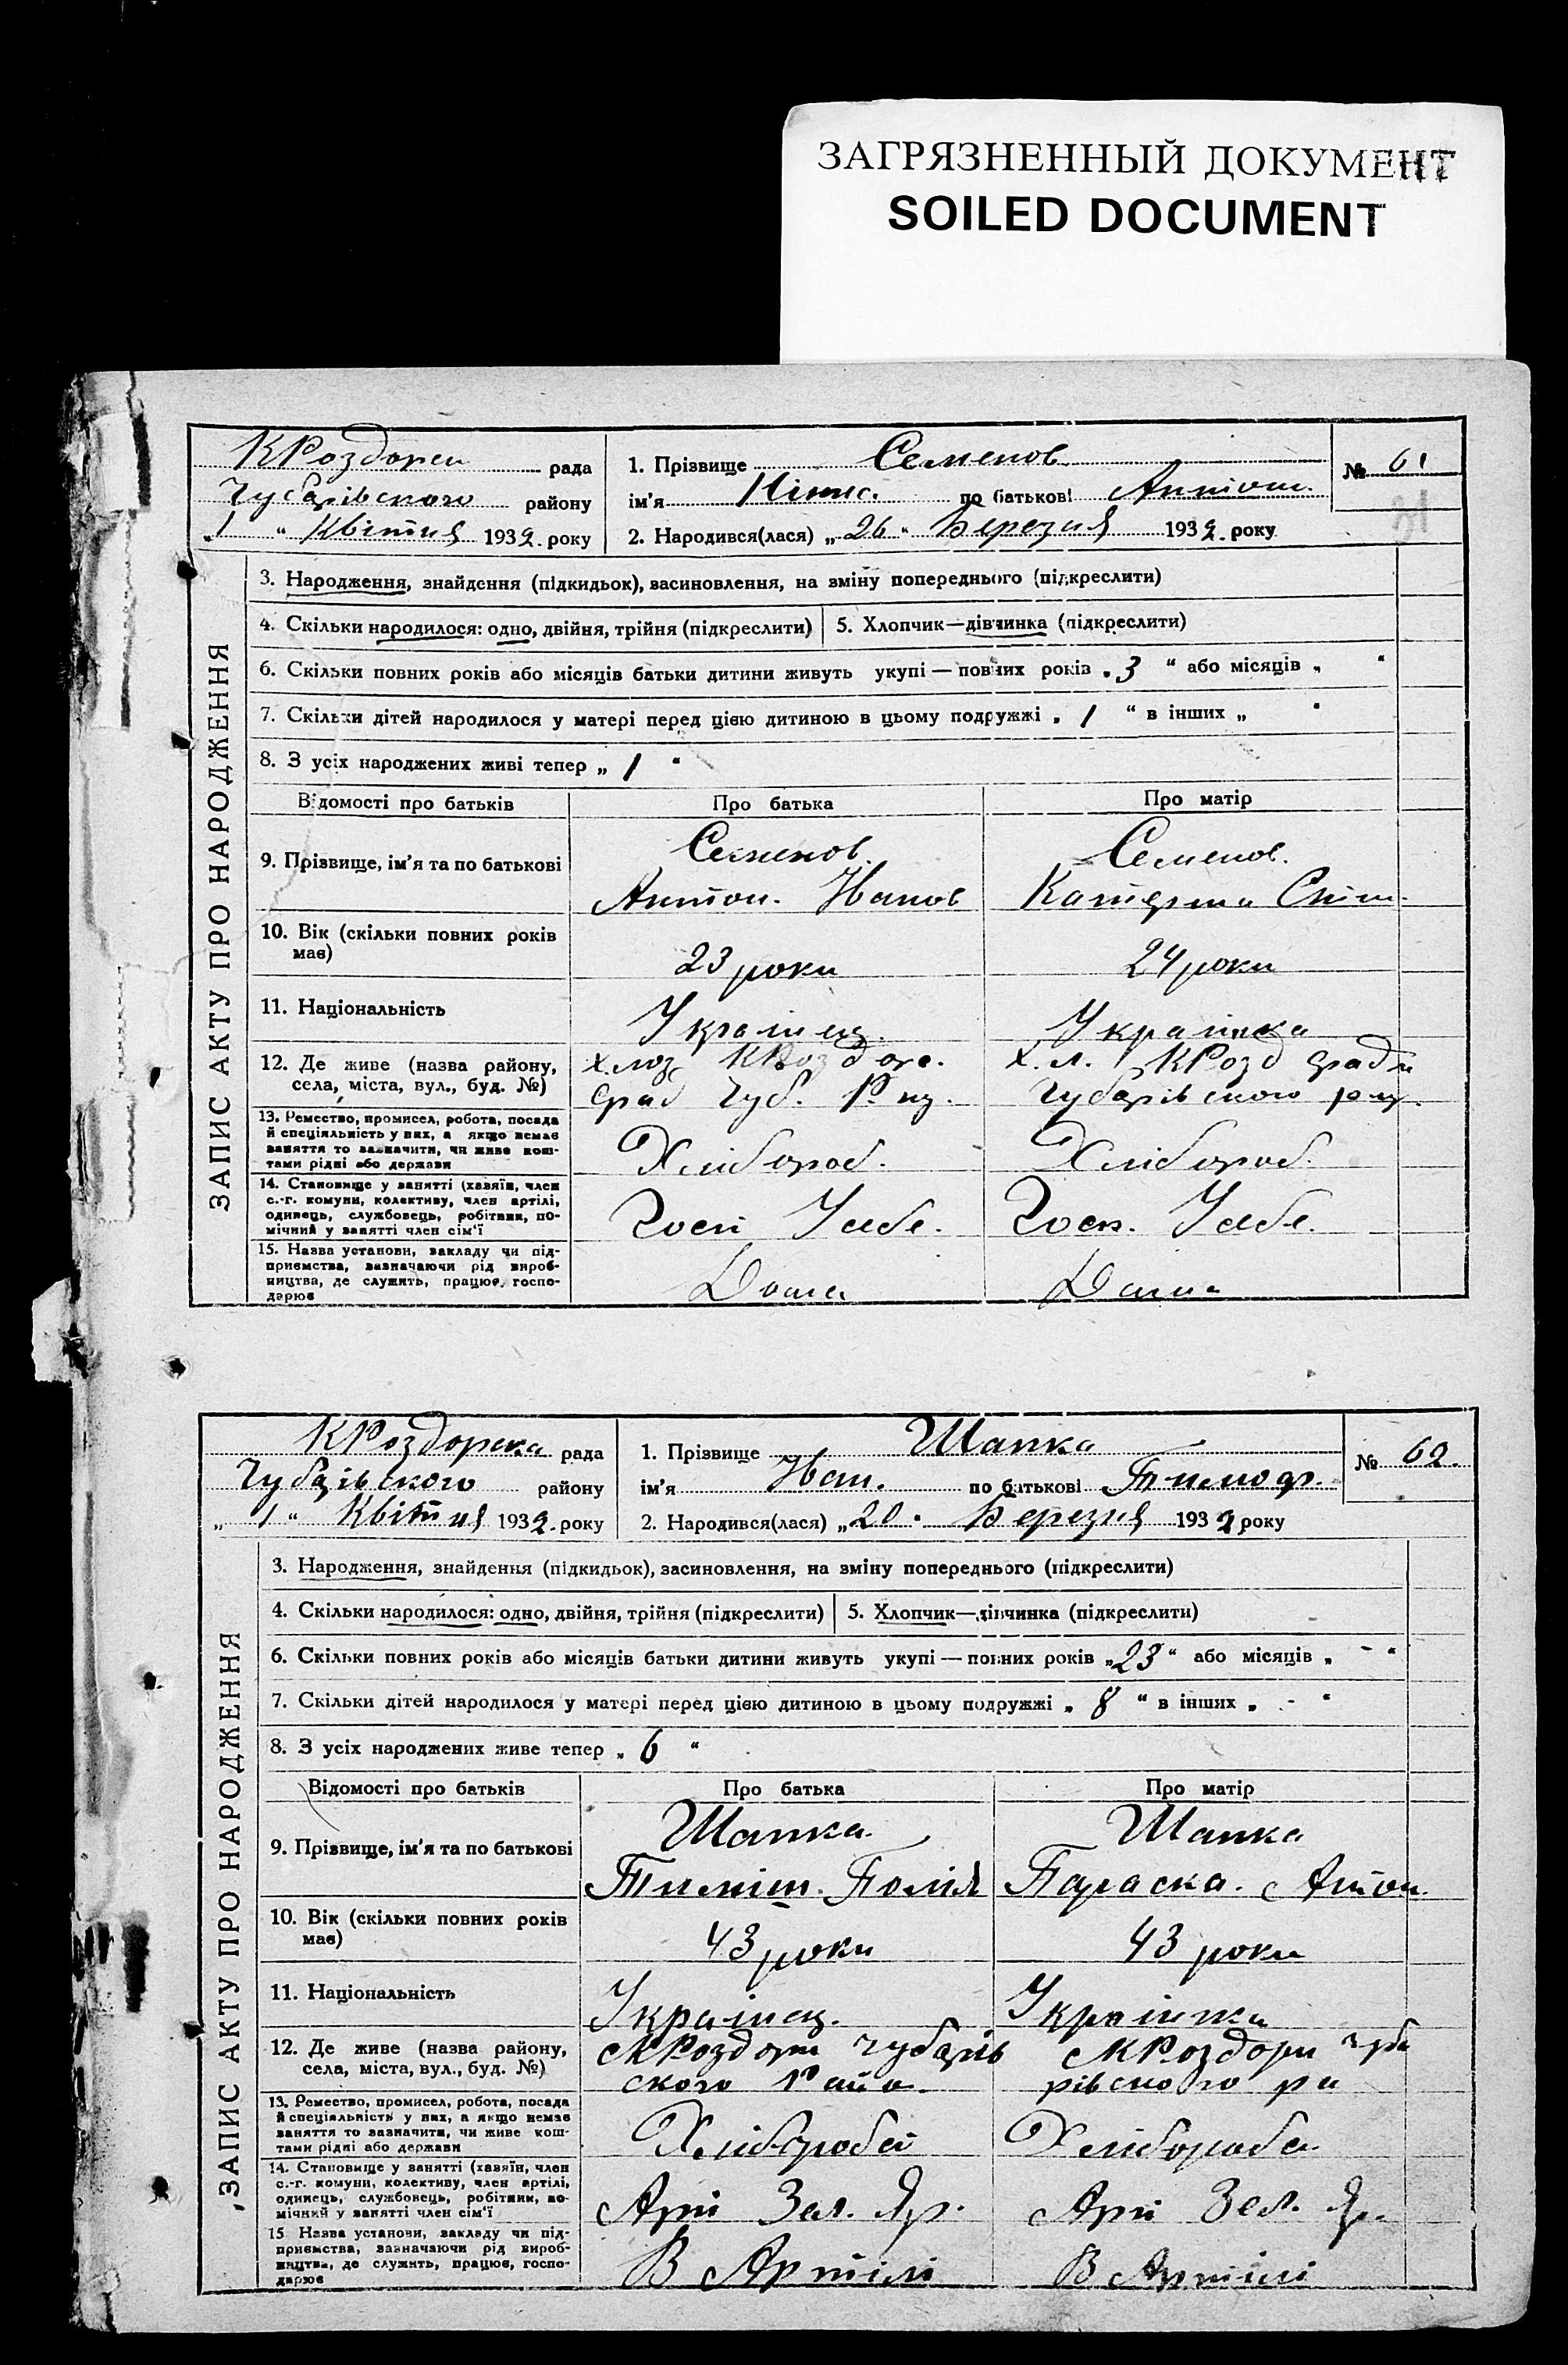 ЗАГРЯЗНЕННЫЙ ДОКУМЕНТ
SOILED DOCUMENT
КРоздорськ рада
Чубарівського району
„1 “ Квітня 1932. року
1. Прізвище Семенов
ім’я по батькові Антон.
2. Народився(лася) „26“ Березня 1932. року
№ 61
31
ЗАПИС АКТУ ПРО НАРОДЖЕННЯ
3. Народження, знайдення (підкидьок), засиновлення, на зміну попереднього (підкреслити)
4. Скільки народилося: одно, двійня, трійня (підкреслити)
5. Хлопчик—дівчинка (підкреслити)
6. Скільки повних років або місяців батьки дитини живуть укупі — повних років „3 “ або місяців „ “
7. Скільки дітей народилося у матері перед цією дитиною в цьому подружжі „ 1 “ в інших „ “
8. З усіх народжених живі тепер „ 1 “
Відомості про батьків Про батька Про матір
9. Прізвище, ім’я та по батькові
Семенов. Семенов.
Антон. Іванов Катерина
10. Вік (скільки повних років
має)
23 роки 24 роки
11. Національність
Українец. Українка
12. Де живе (назва району,
села, міста, вул., буд. №)
КРозд
Чуб. Чубарівського
13. Ремество, промисел, робота, посада
й спеціяльність у них, а якщо немає
заняття то зазначити, чи живе кош-
тами рідні або держави
Хлібороб. Хлібороб.
14. Становище у занятті (хазяїн, член
с.-г. комуни, колективу, член артілі,
одинець, службовець, робітник, по-
мічний у занятті член сім’ї
Госп. Госп.
15. Назва установи, закладу чи під-
приємства, зазначаючи рід вироб-
ництва, де служить, працює, госпо-
дарює
Дома Дома
КРоздорська рада
Чубарівського району
„ 1 “ Квітня 1932. року
1. Прізвище Шапка
ім’я Іван. по батькові Тимоф.
2. Народився(лася) „20“ Березня 1932 року
№ 62.
ЗАПИС АКТУ ПРО НАРОДЖЕННЯ
3. Народження, знайдення (підкидьок), засиновлення, на зміну попереднього (підкреслити)
4. Скільки народилося: одно, двійня, трійня (підкреслити)
5. Хлопчик—дівчинка (підкреслити)
6. Скільки повних років або місяців батьки дитини живуть укупі — повних років „23“ або місяців „ - “
7. Скільки дітей народилося у матері перед цією дитиною в цьому подружжі „ 8 “ в інших „ - “
8. З усіх народжених живе тепер „ 6 “
Відомості про батьків Про батька Про матір
9. Прізвище, ім’я та по батькові
Шапка. Шапка
Тиміш. Параска. Антон.
10. Вік (скільки повних років
має)
43 роки 43 роки
11. Національність
Українец. Українка
12. Де живе (назва району,
села, міста, вул., буд. №)
с КРоздори Чубарів с КРоздори Чуба
ського Райо. рівського ра
13. Ремество, промисел, робота, посада
й спеціяльність у них, а якщо немає
заняття то зазначити, чи живе кош-
тами рідні або держави
Хлібороби Хлібороби
14. Становище у занятті (хазяїн, член
с.-г. комуни, колективу, член артілі,
одинець, службовець, робітник, по-
мічний у занятті член сім’ї
Арт Зел. Яр. Арт Зел. Яр.
15 Назва установи, закладу чи під-
приємства, зазначаючи рід вироб-
ництва, де служить, працює, госпо-
дарює
В Артілі В Артілі